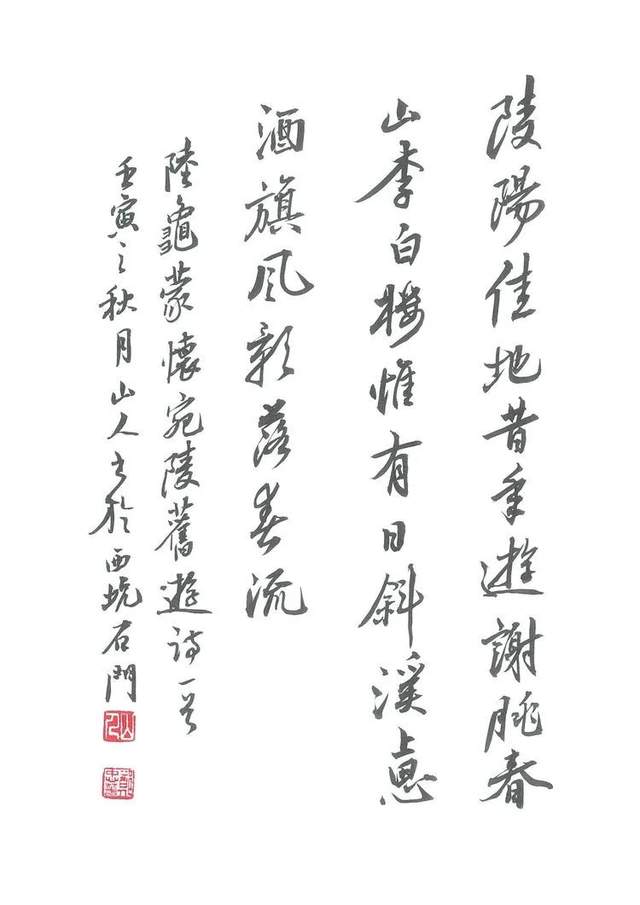 陵陽佳地昔年遊謝朓春
山李白樓惟有日斜溪上思
酒旗風影落春流
陸龜蒙懷宛陵舊遊詩一首
壬寅之秋月山人書於西坑石門
山人